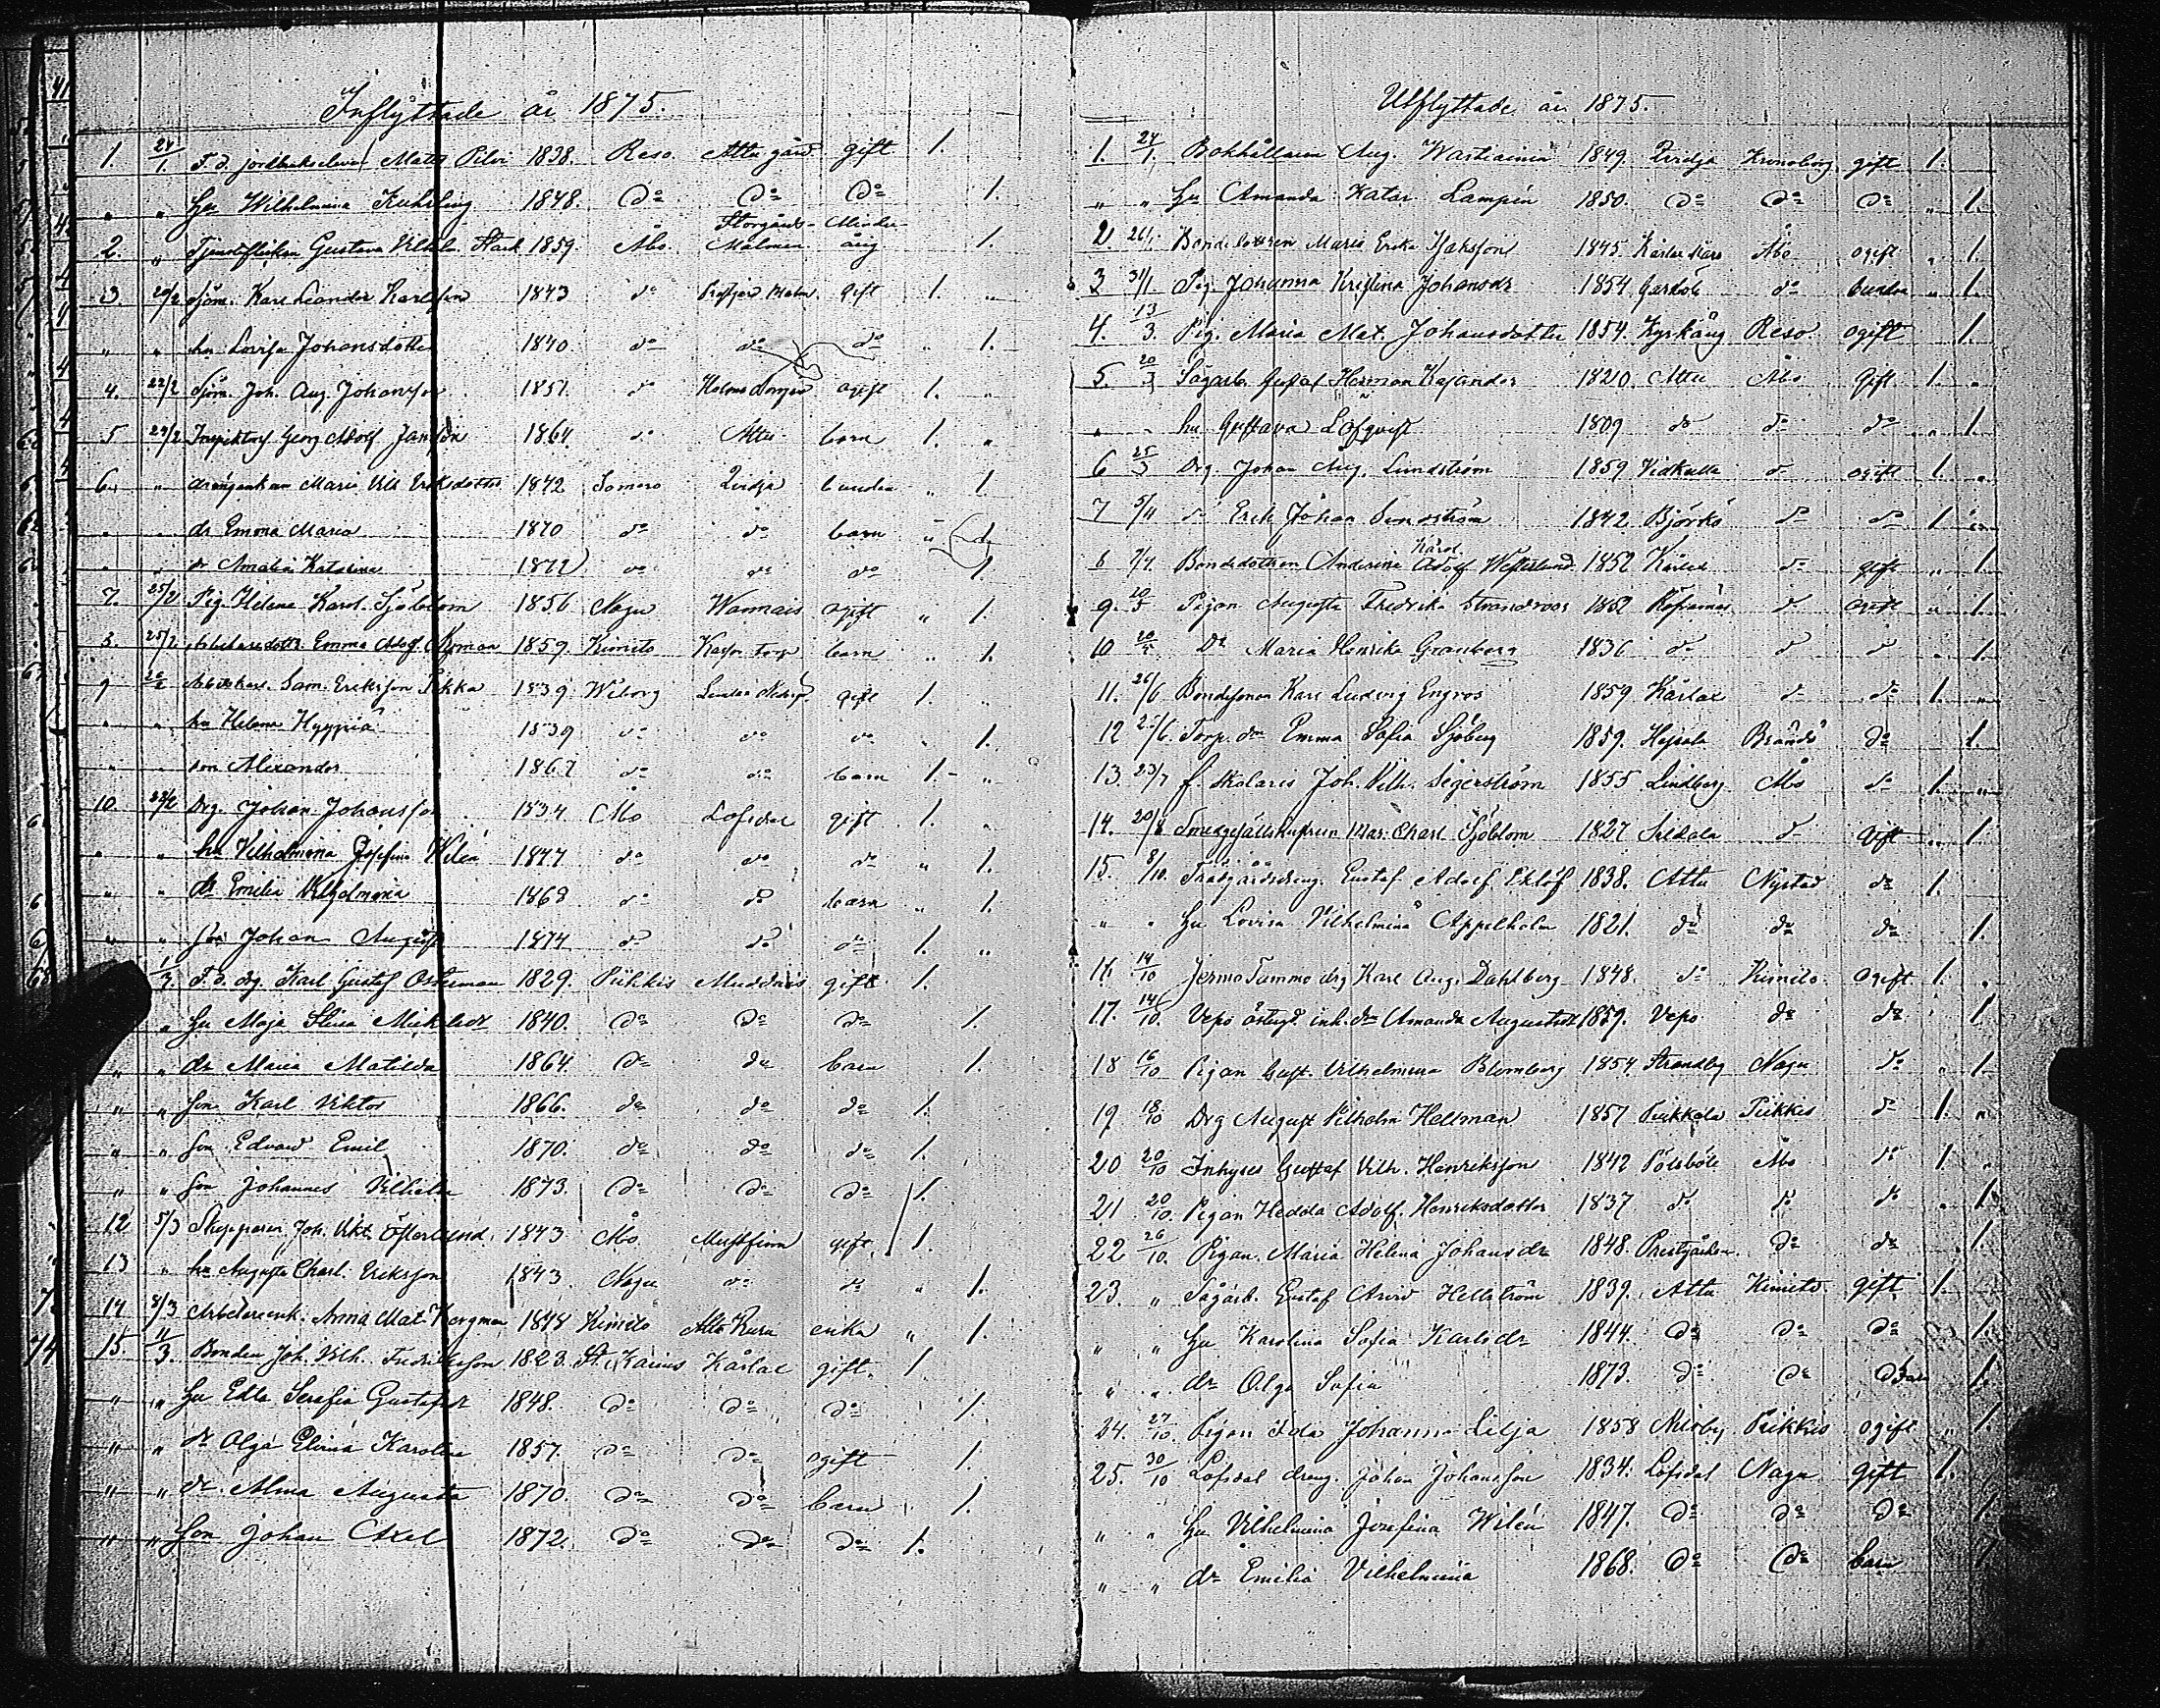 Inflyttade år 1875.
1. 24/1. F. d. jordbrukselever Matts Pilvi 1838. Reso. Attu gård gift 1.
" " Hu Wilhelmina Kuhrling 1848. Do Do Do 1.
2. " Tjensteflickan Gustava Vilhelm. Stark 1859. Åbo. Storgårds- Malmen Minder- årig 1.
3 20/2 Sjöm. Karl Leander Karlsson 1843 do gift 1. "
" " hu Lovisa Johansdotter 1840. do do do " 1.
4. 22/2 Sjöm. Joh. Aug. Johansson 1851. do ogift 1. "
5 24/2 Inspektors Georg Adolf Jansson 1864 do Attu barn 1. "
6. " drängenkan Maria Vilh Eriksdotter 1842 Somero Qvidja " 1.
" " dr Emma Maria 1870 do do barn " 1.
" " dr Amalia Katarina 1872 do do do 1.
7. 25/2 Pig. Helena Karol. Sjöblom 1856 Nagu Wannais ogift " 1.
8. 25/2 Arbetaredottr. Emma Adolf. 1859. Kimito barn " 1.
9 26/2 Arbetskarl. Sam. Eriksson Pikka 1839 Wiborg gift 1. "
" " hu Helena Hyppiä 1839 do do do " 1.
" " son Alexander 1867 do do barn 1. "
10. 28/2 Drg. Johan Johansson 1834 Åbo Lofsdal gift 1. "
" " hu Vilhelmina Josefina Wilén 1847 do do do " 1.
" " dr Emilia Vilhelmina 1868 do do barn " 1.
" " son Johan August 1874 do do do 1. "
1/3. F. d. drg. Karl Gustaf Österman 1829. Piikkis Muddais gift 1.
" Hu Maja Stina Mickelsdr 1840. Do Do Do 1.
" " dr Maria Matilda 1864. Do do barn 1.
" " son Karl Viktor 1866. do do do 1.
" " son Edvard Emil 1870. do do do 1.
" " son Johannes Vilhelm 1873. Do Do Do 1.
12 5/3 Skepparen Joh. Vikt. Österlund. 1843 Åbo Mustfinn gift. 1.
13 " hu Augusta Charl. Eriksson 1843. Nagu do do " 1.
14 8/3 Arbetareenk. Anna Mat. Bergman 1848 Kimito enka " 1.
15. 11/3. Bonden Joh. Vilh. Fredriksson 1823. St. Karins Kårlax gift. 1.
" " Hu Edla Serafia Gustafsdr 1848. Do Do Do 1.
" " dr Olga Elvina Karolina 1857. Do Do ogift 1.
" " dr Alma Augusta 1870. Do Do barn 1.
" " Son Johan Axel 1872. Do Do Do 1.
Utflyttade år 1875.
1. 24/1. Bokhållaren Aug. Wartiainen 1849. Qvidja Kronoborg gift 1.
" " Hu Amanda Katar. Lampén 1850. Do Do Do " 1.
2. 26/1 Bondedottren Maria Erika Isaksson 1845. Åbo ogift " 1.
3 31/1 Pig. Johanna Kristina Johansdr 1854 do " 1.
4. 13/3. Pig. Maria Mat. Johansdotter 1854. Kyrkäng Reso ogift 1.
5. 20/3 Sågarb. Gustaf Herman Kajander 1820. Attu Åbo gift 1. "
" " hu Gustava Löfqvist 1809 do do do " 1.
6 25/3 Drg. Johan Aug. Lundström 1859 Vidkulla do ogift 1. "
7 5/11 do Erik Johan Sundström 1842 Björkö do do 1. "
8 7/4. Bondedottren Anderina Karol. Adolf Westerlund. 1852 Kårlax do gift " 1.
9. 20/5 Pigan Augusta Fredrika Strandroos 1852 do ogift " 1.
10 20/5. Do Maria Henrika Granberg 1836 do do do 1.
11. 26/6 Bondsonen Karl Ludvig Engros 1859 Kårlax do do 1. "
12 /6. Torp. dr Emma Sofia Sjöberg 1859. Brändö do 1.
13. 23/7 f. skolaris Joh. Vilh. Segerström 1855 Lindberg Åbo do 1. "
14. 20/8 Smedgesällshustrun Mar. Charl. Sjöblom 1827 Sildala do gift " 1.
15. 8/10. Trädgårdsdreng. Gustaf Adolf Eklöf 1838. Attu Nystad do 1.
" " Hu Lovisa Vilhelmina Appelholm 1821. do do do 1.
16. 14/10 Jermo Tammo drg Karl Aug. Dahlberg 1848. do Kimito ogift 1. "
17. 14/10. Vepo östergd. inh. dr Amanda Augustsdr 1859. Vepo do do 1.
18 16/10 Pigan Gust. Vilhelmina Blomberg 1854. Strandby Nagu do " 1.
19 18/10 Drg August Vilhelm Hellman 1857 Piikkis do 1. "
20 20/10 Inhyses Gustaf Vilh. Henriksson 1842 Pölsböle Åbo do 1. "
21 20/10. Pigan Hedda Adolf. Henriksdotter 1837 do do do " 1.
22 26/10. Pigan Maria Helena Johansdr 1848. Prestgården do do 1.
23. " Sågarb. Gustaf Arvid Hellström 1839. Attu Kimito gift 1.
" " Hu Karolina Sofia Karlsdr 1844. Do Do Do 1.
" " dr Olga Sofia 1873. Do Do barn 1.
24. 27/10. Pigan Ida Johanna Lilja 1858 Piikkis ogift " 1.
25. 30/10 Lofsdal dreng. Johan Johansson 1834. Lofsdal Nagu gift 1.
" " Hu Vilhelmina Josefina Wilén 1847. Do Do Do 1.
" " dr Emilia Vilhelmina 1868. Do Do barn 1